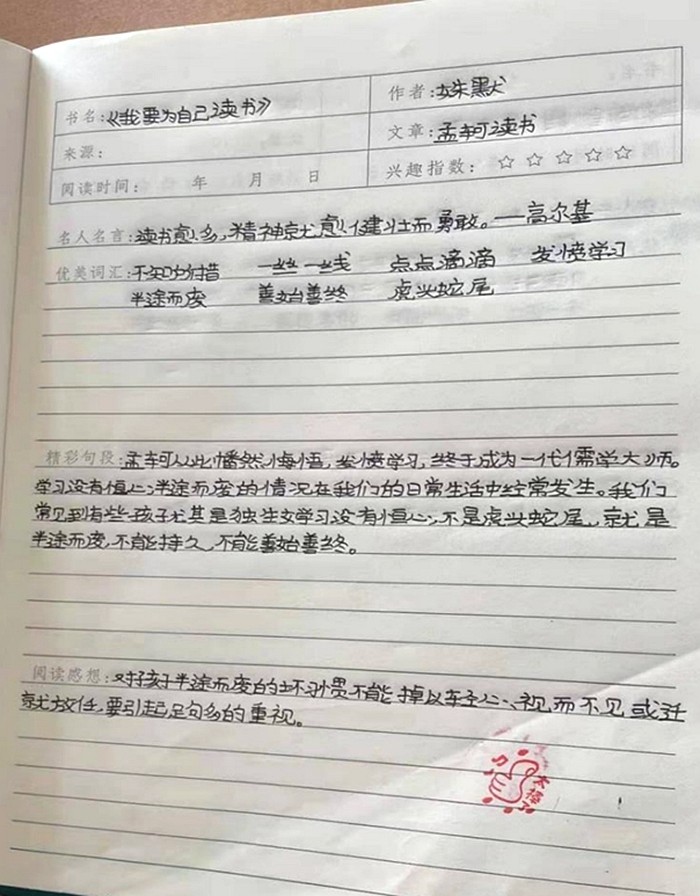 书名:《我要为自己读书》
作者:姝默
来源:
文章:孟轲读书
阅读时间: 年 月 日
兴趣指数:☆☆☆☆☆
名人名言:读书愈多,精神就愈健壮而勇敢。——高尔基
优美词汇:不知所措 一丝一线 点点滴滴 发愤学习
半途而废 善始善终 虎头蛇尾
精彩句段:孟轲从此幡然悔悟,发愤学习,终于成为一代儒学大师。
学习没有恒心;半途而废的情况在我们的日常生活中经常发生。我们
常见到有些孩子尤其是独生女学习没有恒心;不是虎头蛇尾,就是
半途而废,不能持久,不能善始善终。
阅读感想:对孩子半途而废的坏习惯不能掉以轻心、视而不见或迁
就放任,要引起足句多的重视。
太棒了